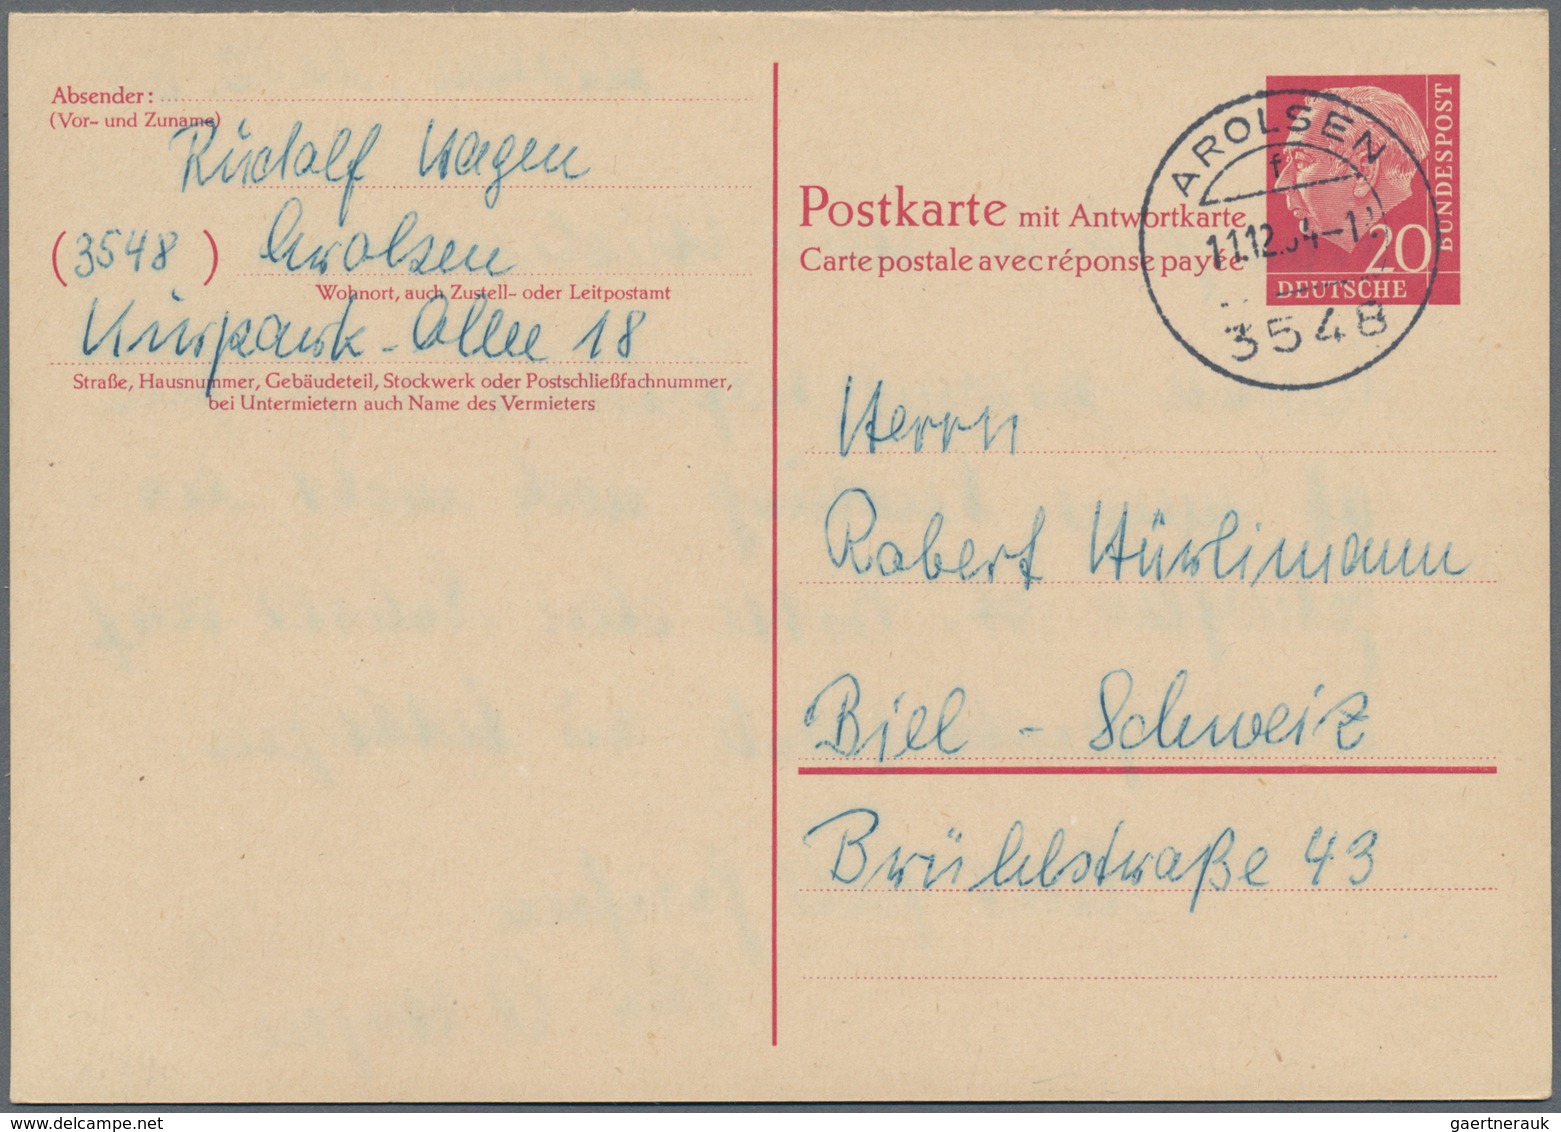 Absender:
(Vor- und Zuname)
Rudolf Hagen
(3548) Arolsen
Wohnort, auch Zustell- oder Leitpostamt
Kurpark-Allee 18
Straße, Hausnummer, Gebäudeteil, Stockwerk oder Postschließfachnummer,
bei Untermietern auch Name des Vermieters
Postkarte mit Antwortkarte
Carte postale avec réponse payée
AROLSEN
f
11.12.64-12
3548
BUNDESPOST
20
DEUTSCHE
Herrn
Robert Hürlimann
Biel - Schweiz
Brühlstraße 43
gaertnerauk